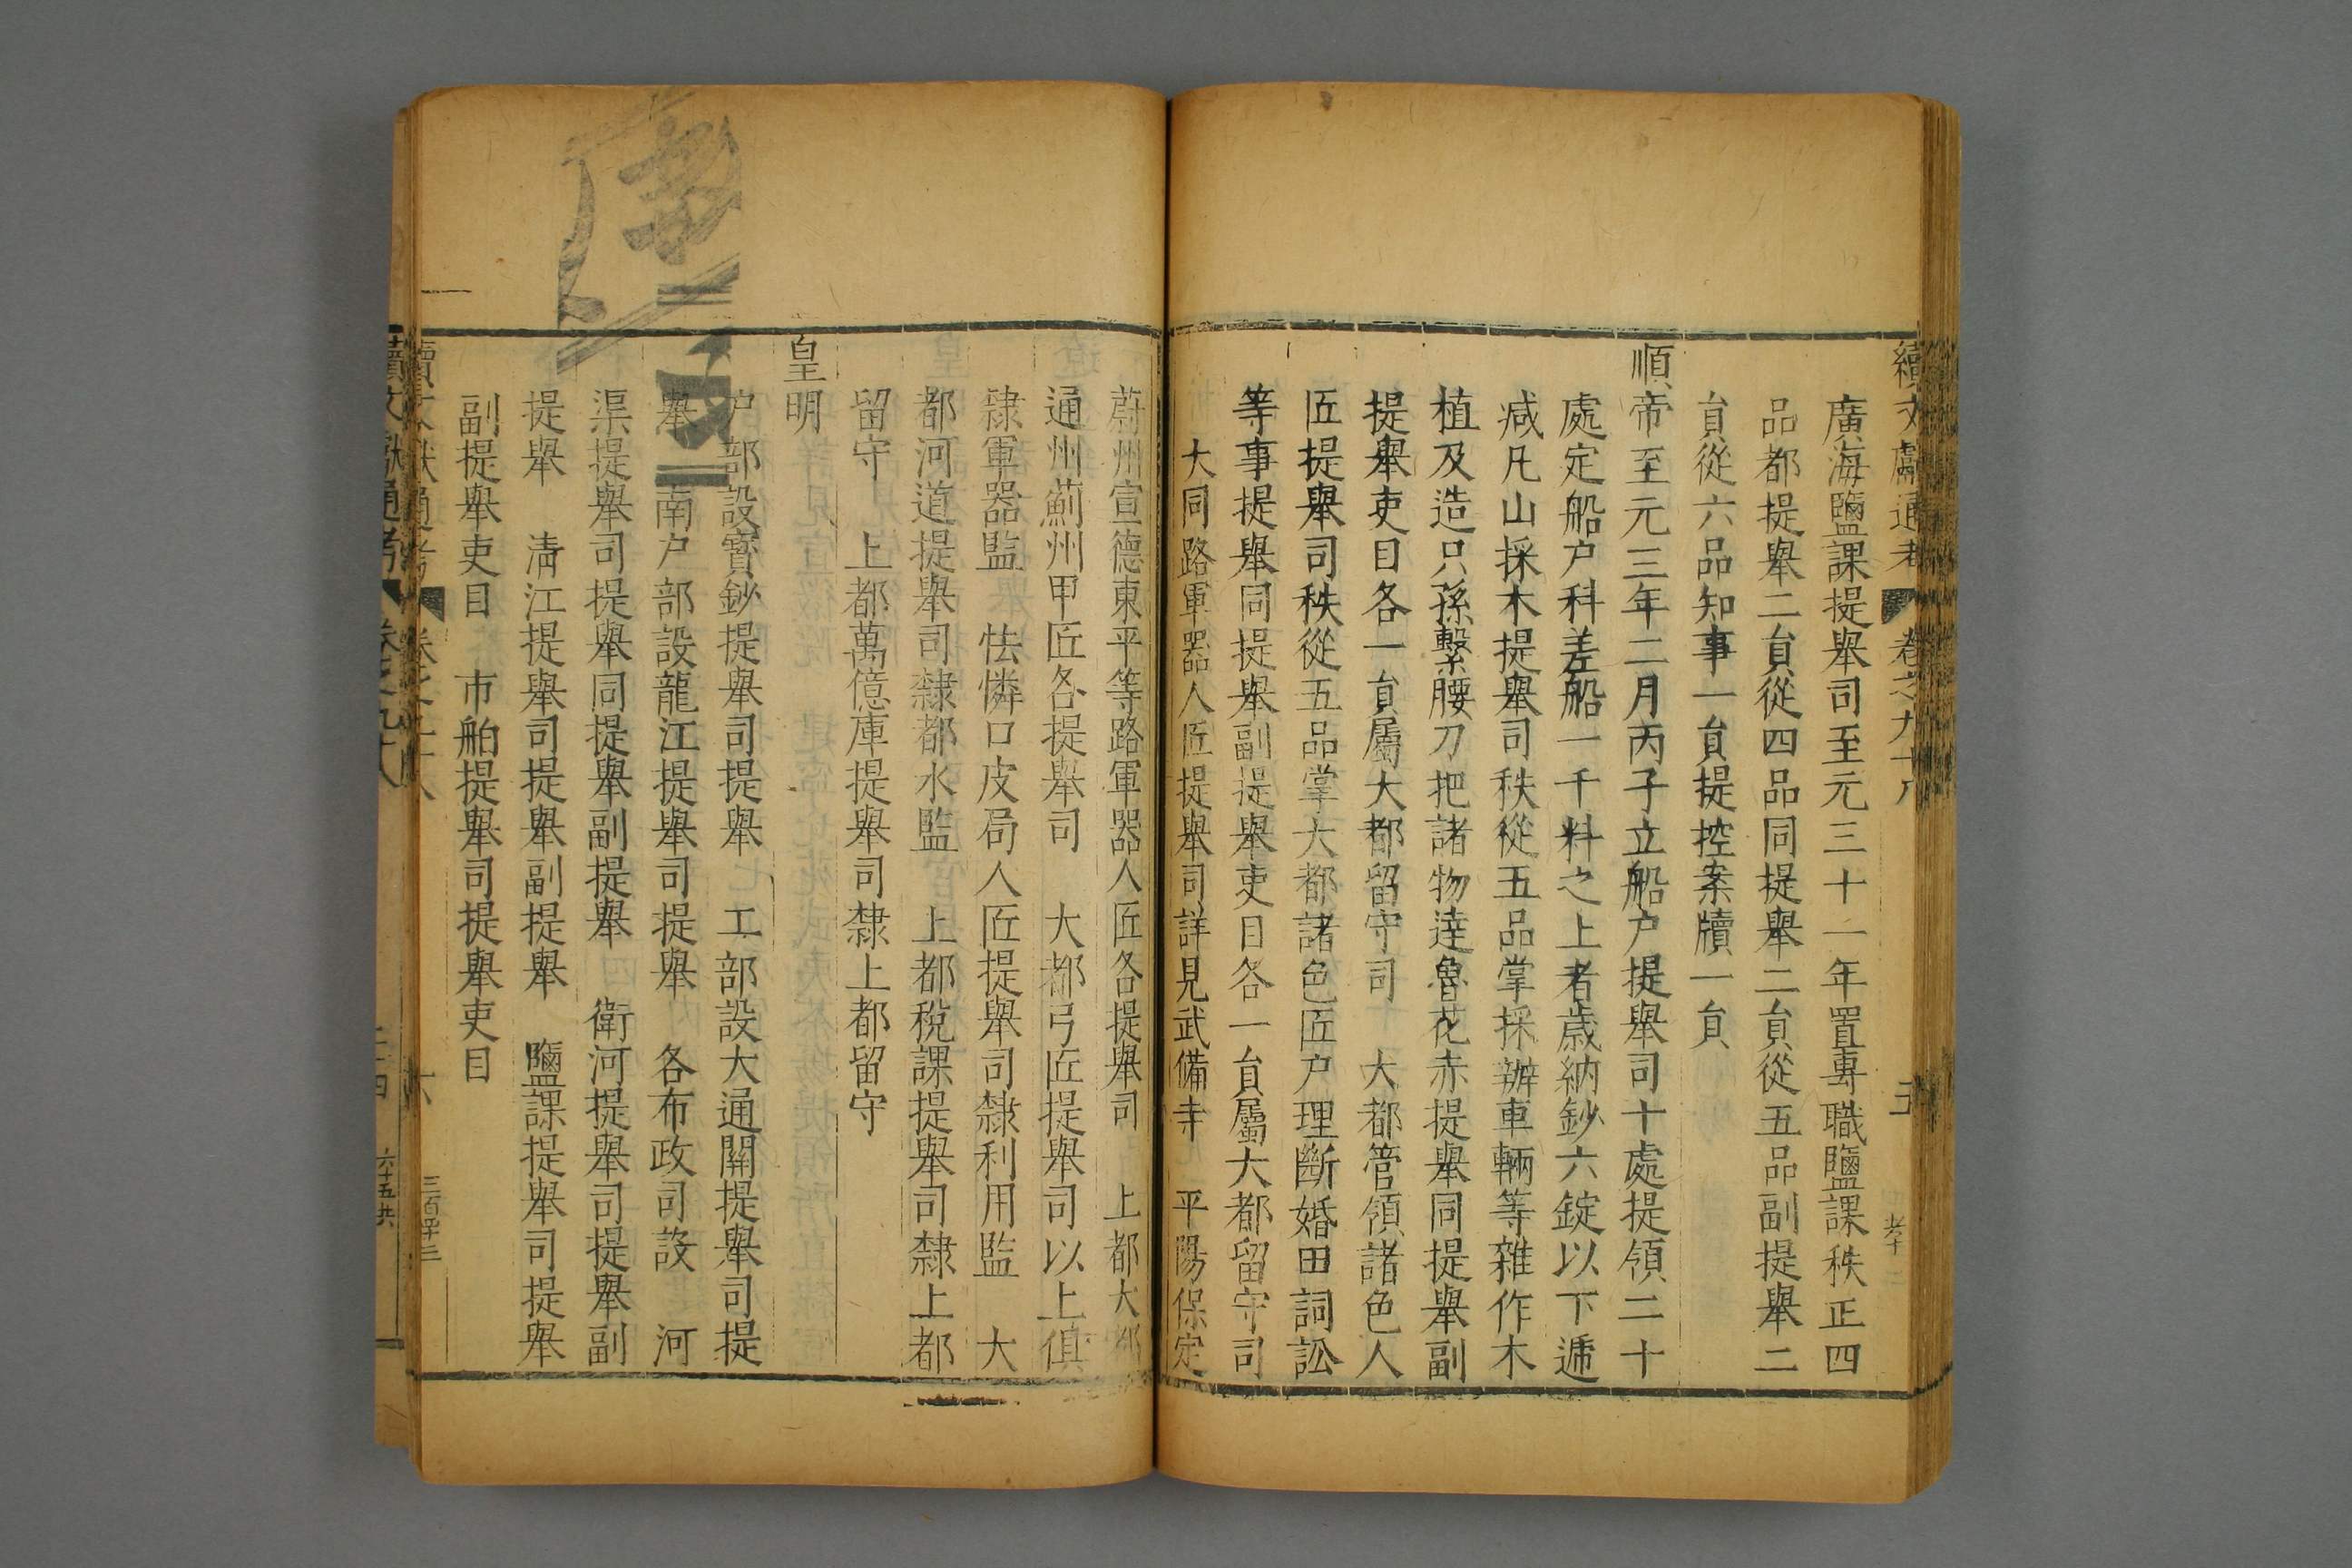 續文獻通考 卷之九十八 五
廣海鹽課提舉司至元三十一年置專職鹽課秩正四
品都提舉二貟從四品同提舉二貟從五品副提舉二
貟從六品知事一貟提控案牘一貟
順帝至元三年二月丙子立船户提舉司十處提領二十
處定船户科差船一千料之上者歲納鈔六錠以下遞
减凡山採木提舉司秩從五品掌採辦車輛等雜作木
植及造只孫繫腰刀把諸物達魯花赤提舉同提舉副
提舉吏目各一貟屬大都留守司 大都管領諸色人
匠提舉司秩從五品掌大都諸色匠户理斷婚田詞訟
等事提舉同提舉副提舉吏目各一貟屬大都留守司
大同路軍器人匠提舉司詳見武備寺 平陽保定
蔚州宣德東平等路軍器人匠各提舉司 上都大都
通州薊州甲匠各提舉司 大都弓匠提舉司以上俱
隸軍器監 怯憐口皮局人匠提舉司隸利用監 大
都河道提舉司隸都水監 上都稅課提舉司隸上都
留守 上都萬億庫提舉司隸上都留守
皇明
户部設寳鈔提舉司提舉 工部設大通關提舉司提
舉 南户部設龍江提舉司提舉 各布政司設 河
渠提舉司提舉同提舉副提舉 衛河提舉司提舉副
提舉 清江提舉司提舉副提舉 鹽課提舉司提舉
副提舉吏目 市舶提舉司提舉吏目